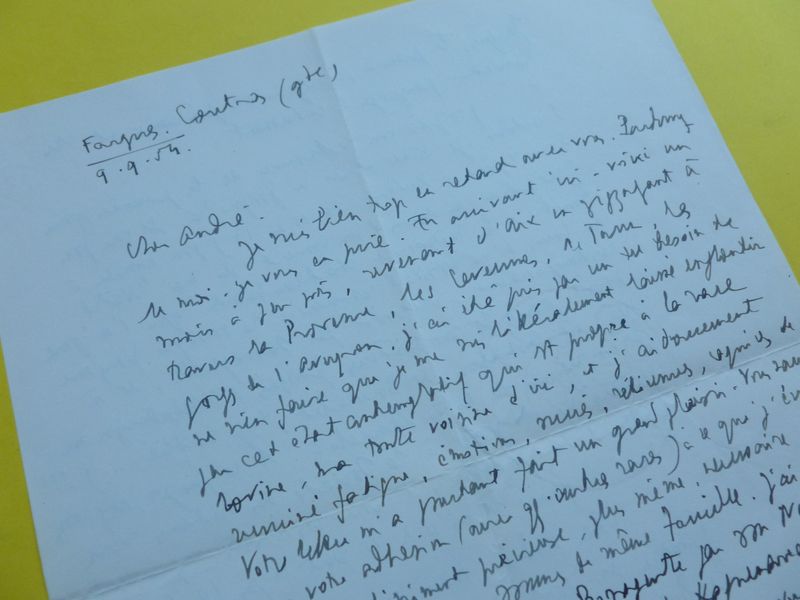 Fargues. Coutras (gde)
9.9.54.
Cher André.
Je suis bien trop en retard avec vous. Pardonnez
le moi, je vous en prie. En arrivant ici - voici un
mois à peu près, revenant d'Aix en zigzagant à
travers la Provence, les Cévennes, le Tarn, les
gorges de l'Aveyron, j'ai été pris par un tel besoin de
ne rien faire que je me suis littéralement laissé
par cet état contemplatif qui est propre à la race
bovine, ma toute voisine d'ici, et j'ai doucement
ruminé fatigue, émotions, soucis,
Votre lettre m'a pourtant fait un grand plaisir. Vous
votre adhésion (avec qq. autres rares) à ce que j'
précieuse, plus même, nécessaire
de même famille. j'ai
par son